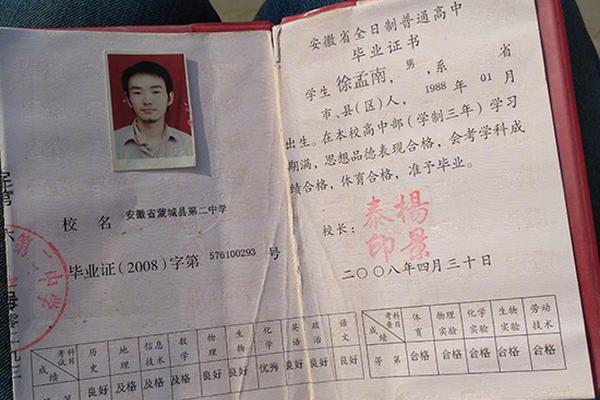 校名 安徽省蒙城县第二中学
毕业证（2008）字第 576100293 号
考试科目 历史 地理 信息技术 数学 物理 生物 化学 英语 政治 语文
成绩 等第 良好 及格 及格 及格 良好 良好 优秀 良好 良好 良好
安徽省全日制普通高中
毕业证书
学生 徐孟南，男，系 省
市、县（区）人，1988 年 01 月
出生。在本校高中部（学制三年）学习
期满，思想品德表现合格，会考学科成
绩合格，体育合格，准予毕业。
校长：
楊景泰印
二〇〇八年四月三十日
考查科目 体育 物理实验 化学实验 生物实验 劳动技术
成绩 等第 合格 合格 合格 合格 合格